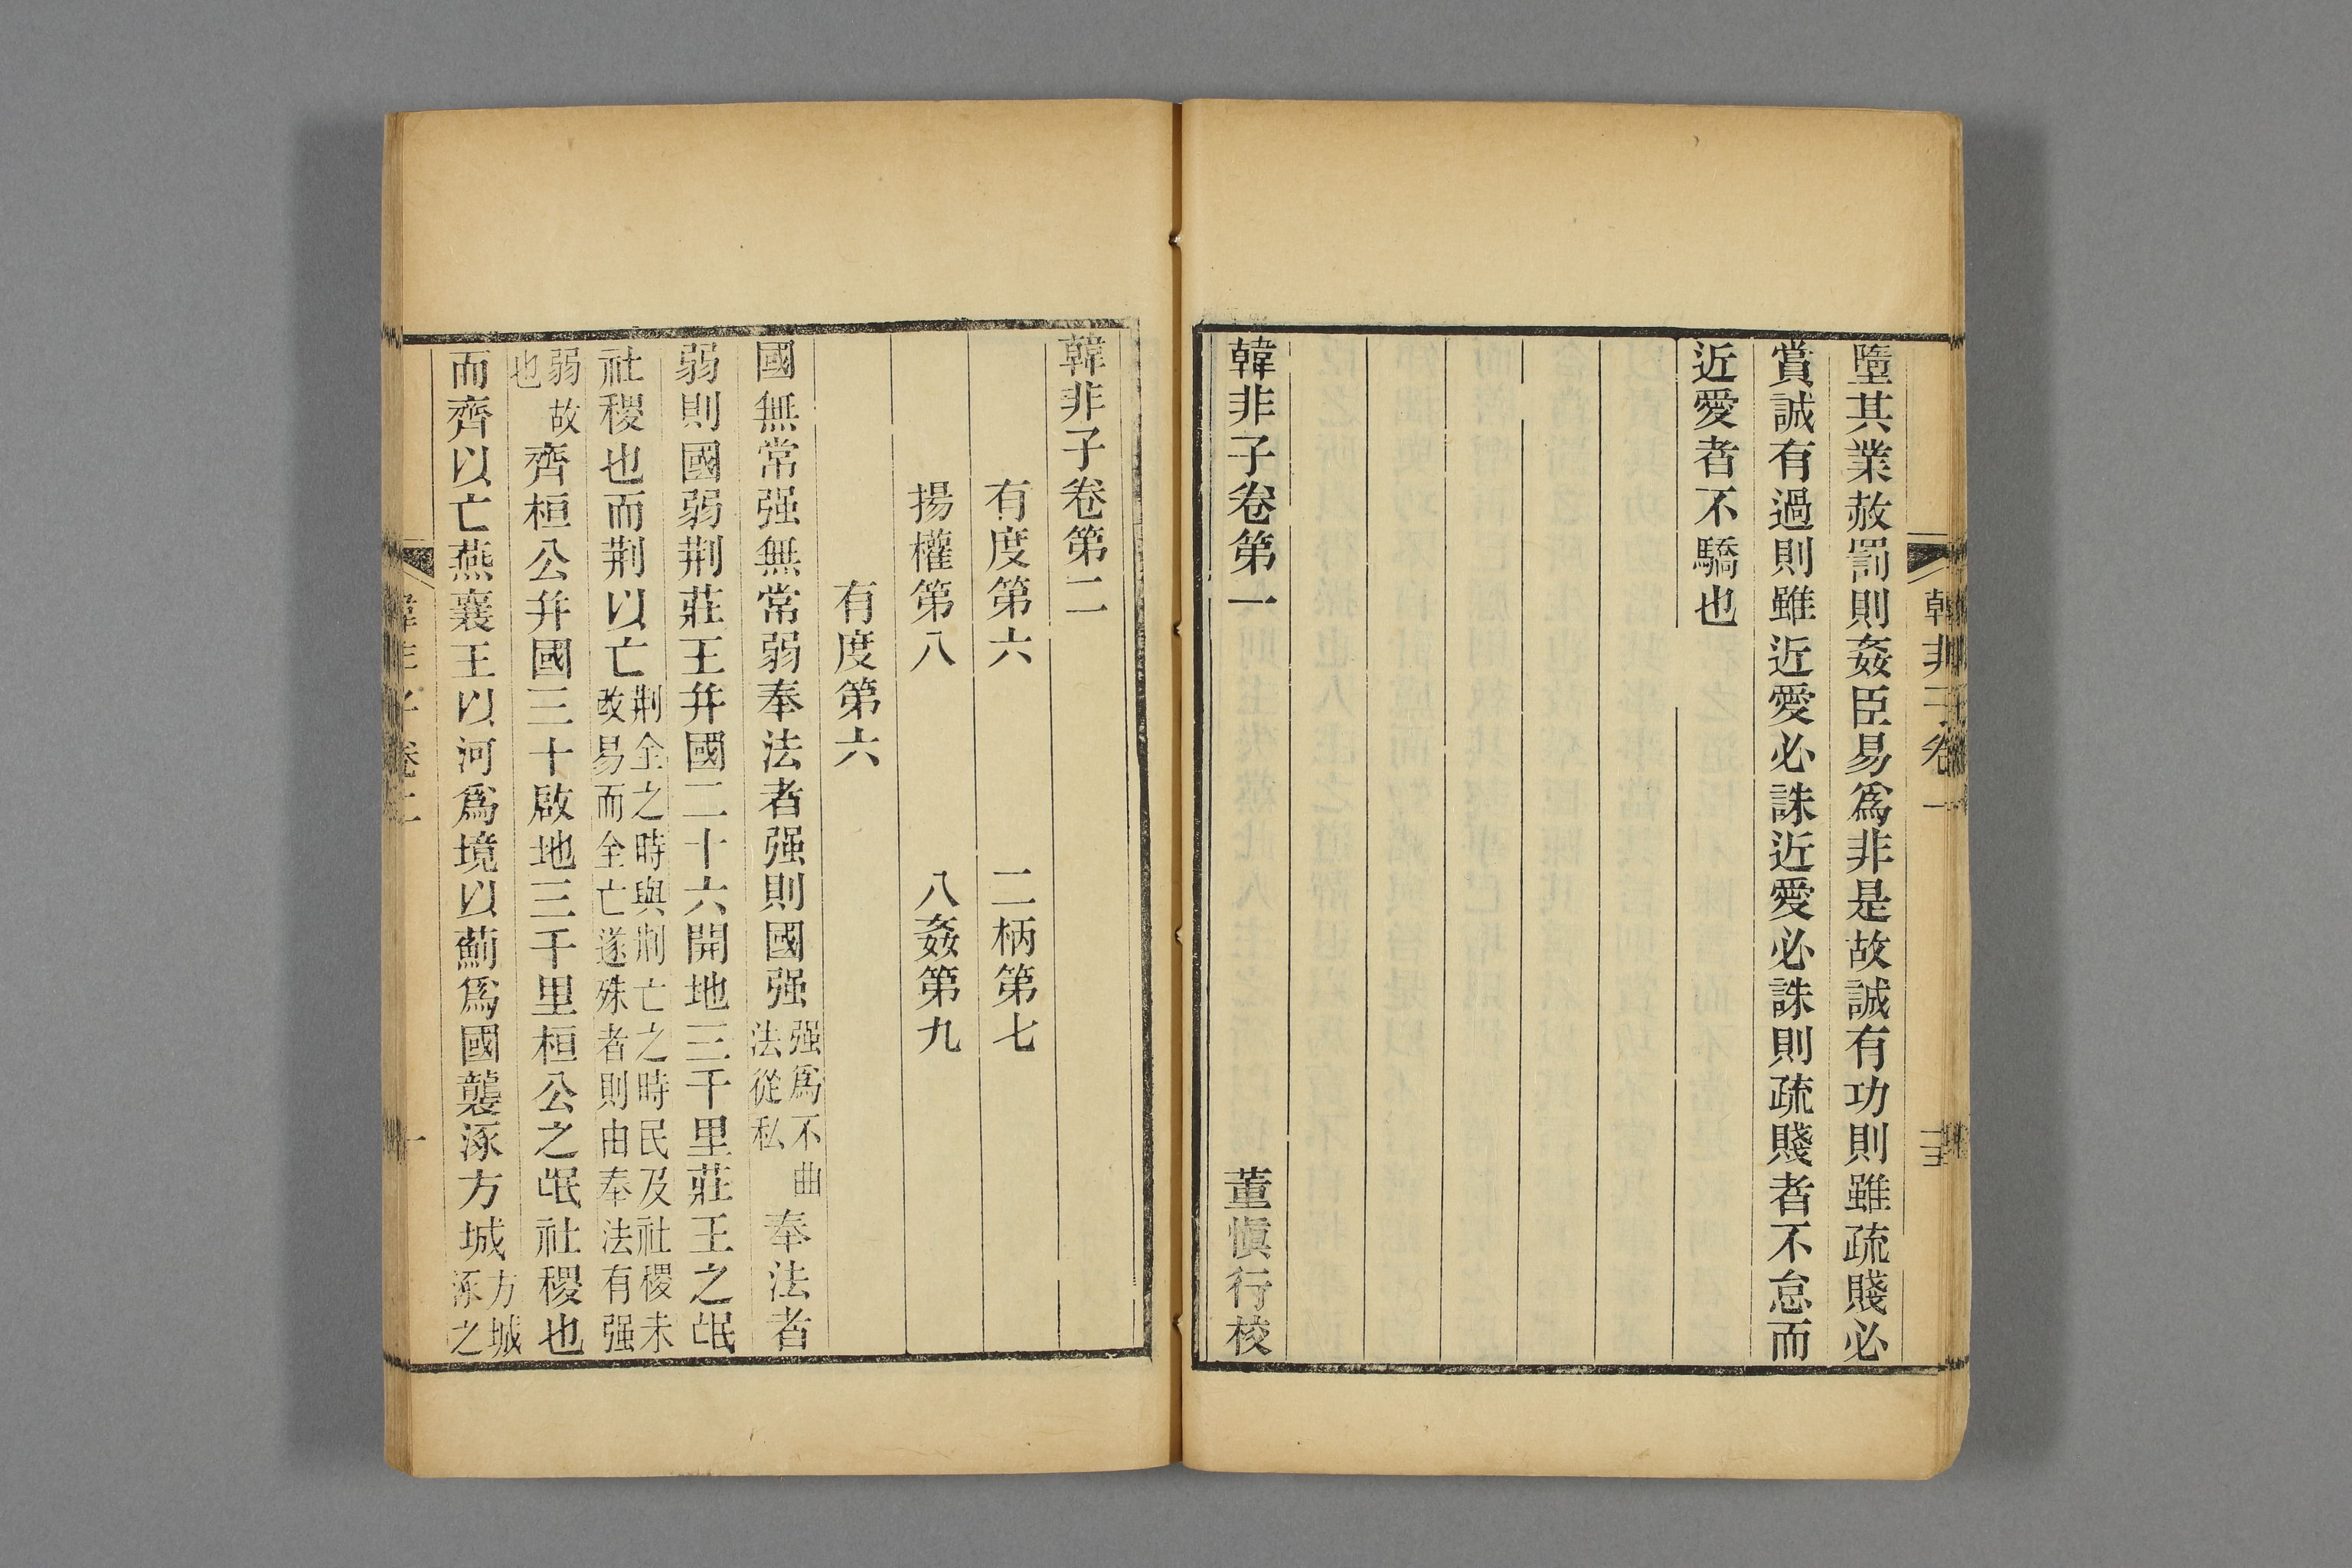 韓非子卷一
墮其業赦罰則姦臣易爲非是故誠有功則雖疏賤必
賞誠有過則雖近愛必誅近愛必誅則疏賤者不怠而
近愛者不驕也
韓非子卷第一 董愼行校
韓非子卷第二
有度第六 二柄第七
揚權第八 八姦第九
有度第六
國無常强無常弱奉法者强則國强强爲不曲法從私奉法者
弱則國弱荆莊王幷國二十六開地三千里莊王之氓
社稷也而荆以亡荆全之時與荆亡之時民及社稷未改易而全亡遂殊者則由奉法有强
弱故也齊桓公幷國三十啟地三千里桓公之氓社稷也
而齊以亡燕襄王以河爲境以薊爲國襲涿方城方城涿之